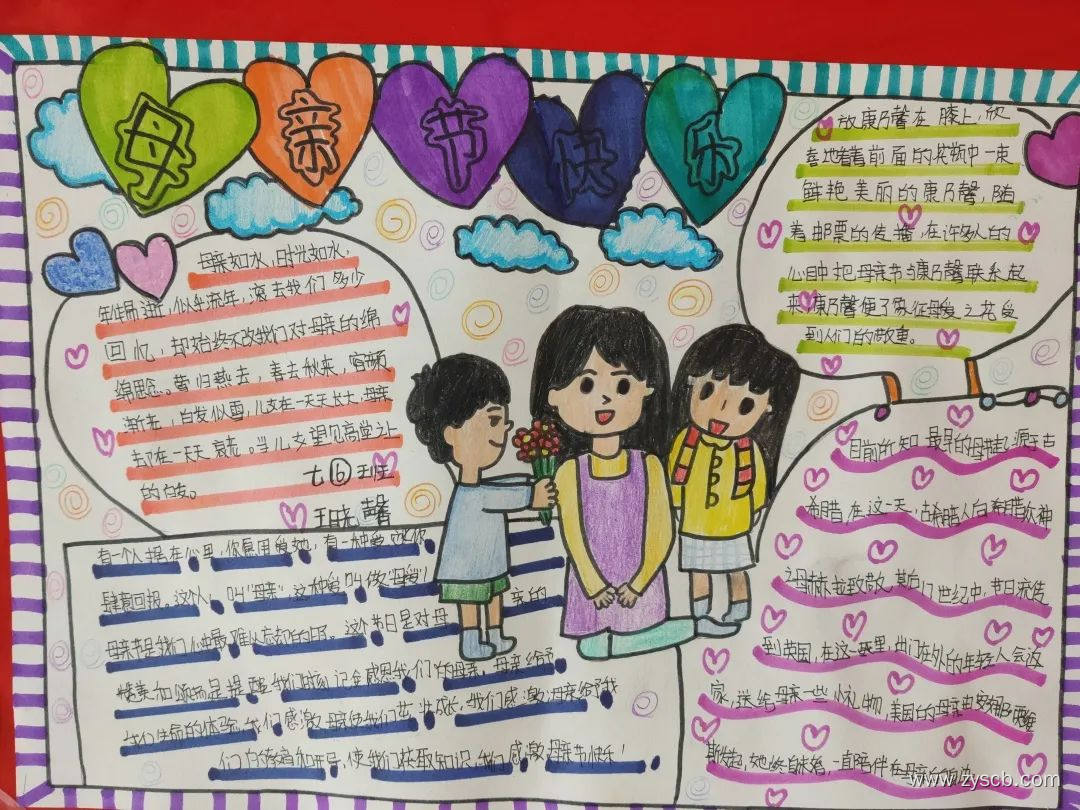 母亲节快乐
母亲如水,时光如水,
似水流年,滚去我们多少
回忆,却始终不改我们对母亲的绵
绵思念。暑归热去,春去秋来,容颜
渐老,白发似雪,儿女在一天天长大,母亲
却在一天天衰老。当儿女望见高堂之上
的白发。
七⑥班
王晓馨
放康乃馨在膝上,欣
喜地看着前面的花瓶中一束
鲜艳美丽的康乃馨,随
着邮票的传播,在许多人的
心目中把母亲节与康乃馨联系起
来,康乃馨便了象征母爱之花受
到人们的敬重。
有一个人据在心里,你
回报。这人,叫"母亲",这种爱叫做"母爱"!
母亲节是我们心中最难以忘却的日。这个节日是对母亲的
赞美和颂扬是提醒我们时刻记会感恩我们的母亲,母亲给予
我们生命的体验我们感激母亲使我们茁壮成长,我们感激母亲给予我
们的教育和开导,使我们获取知识,我们感激母亲节快乐!
目前所知最早的母亲起源于古
希腊在这一天,古希腊人向希腊众神
之母赫拉致敬。其后几世纪中,节日流传
到英国,在这一天里,出门在外的年轻人会返
家,送给母亲一些小礼物,美国的母亲由安娜
斯发起,她终身未婚,一直陪伴在母亲
www.zyscb.com